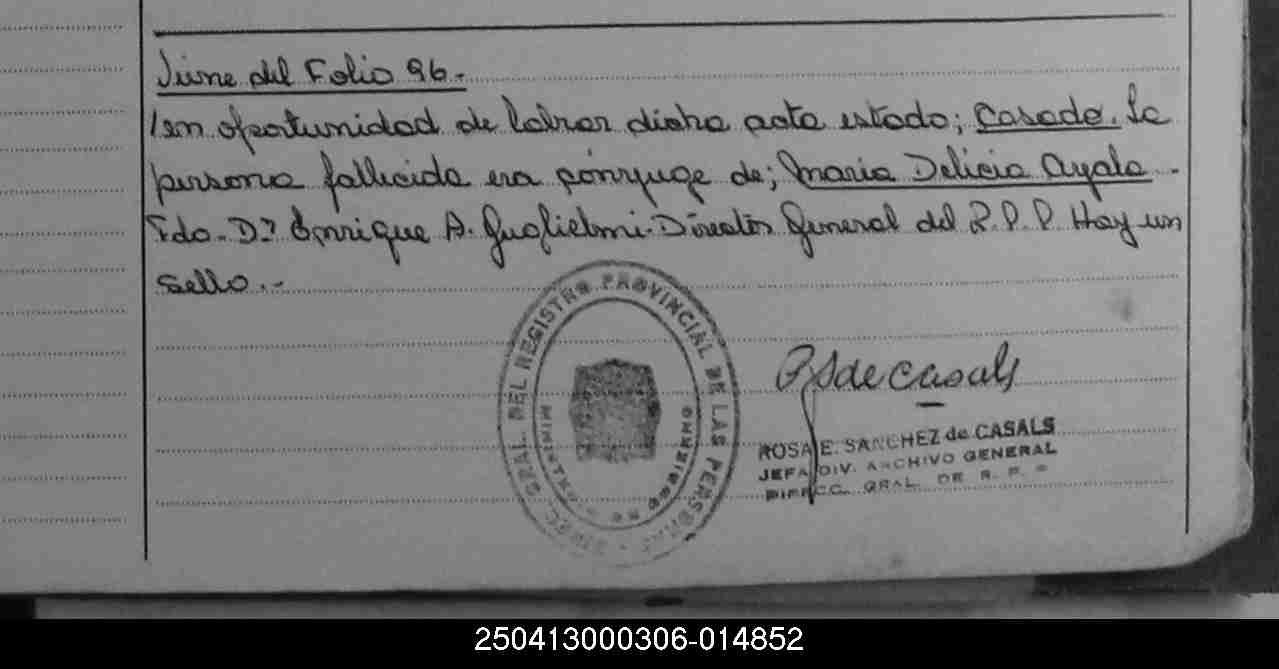 Viene del Folio 96.-
/en oportunidad de labrar dicha acta estado; Casado. La
persona fallecida era cónyuge de; Maria Delicia Ayala.-
Fdo. Dr. Enrique A. Guglielmi. Director General del R.P.P. Hay un
sello.-
GRAL. DEL REGISTRO PROVINCIAL DE LAS PERSONAS
MINISTERIO DE GOBIERNO
RSdeCasals
ROSA E. SANCHEZ de CASALS
JEFA DIV. ARCHIVO GENERAL
DIRECC. GRAL. DE R. P.
250413000306-014852